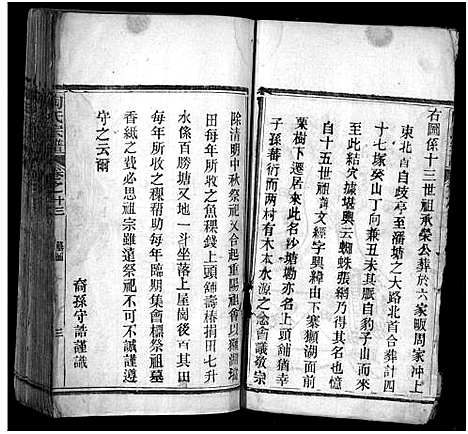 右圖係十三世祖承榮公葬於六家畈周家冲上
東北首自歧亭至潘塘之大路北首合葬計四
十七塚癸山丁向兼丑未其脈自豹子山而來
至此結穴據堪輿云蜘蛛張網乃得其名也憶
自十五世祖文經字興緯由下寨獺湖面前
栗樹下遷居來此名沙塘墈亦名上頭舖猶幸
子孫蕃衍而两村有木本水源之念會議敬宗
除清明中秋祭祀又合起重陽祖會以獺湖壋
田每年所收之魚稞錢上頭舖壽椿捐田七升
水係百勝塘又地一斗坐落上屋崗後百其
每年所收之稞帮助每年臨期集會標祭祖墓
香紙之費必思祖宗雖遠祭祀不可不誠謹遵
守之云爾
裔孫守誥謹識
陶氏宗譜
卷之廿三
墓圖
三